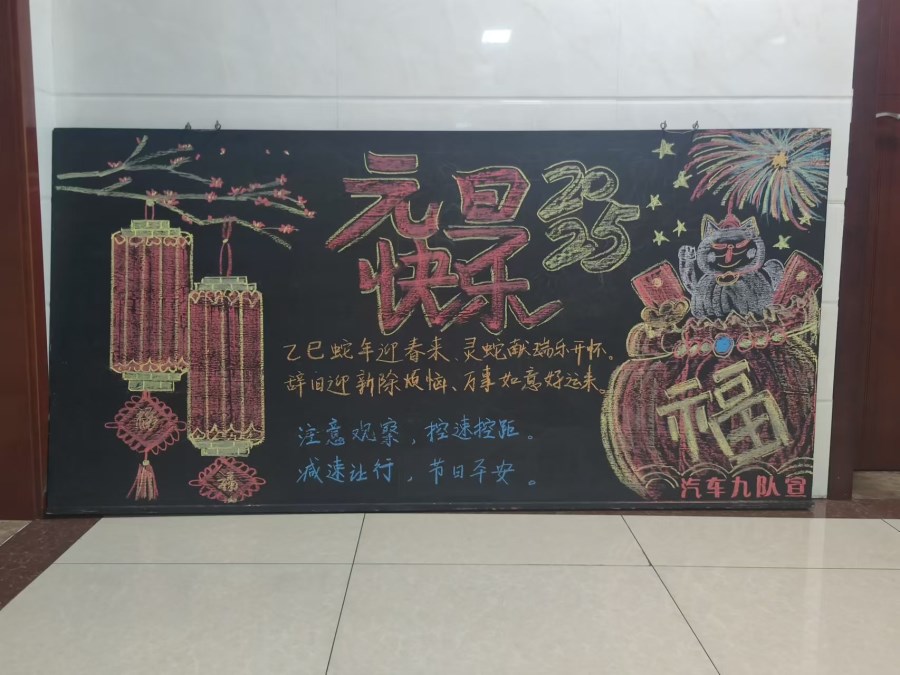 元旦
快乐
2025
乙巳蛇年迎春来、灵蛇献瑞乐开怀。
辞旧迎新除烦恼、万事如意好运来。
注意观察，控速控距。
减速让行，节日平安。
福
福
福
汽车九队宣